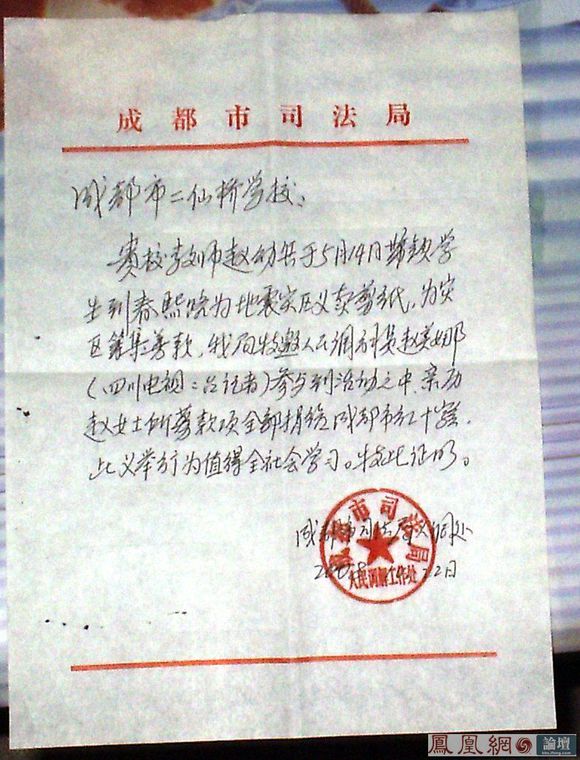 成都市司法局
成都市二仙桥学校:
贵校老师赵幼 于5月14日带领学
生到春熙院为地震灾区义卖剪纸,为灾
区筹集善款,我局特邀人民调解员赵 娜
(四川电视二台记者)参与到活动之中,亲历
赵女士所筹款项全部捐给成都市红十字会,
此义举行为值得全社会学习。特此证明。
成都市司法局 处
2008 22日
成都市司法局
人民调解工作处
鳳凰網 論壇
bbs.ifeng.com